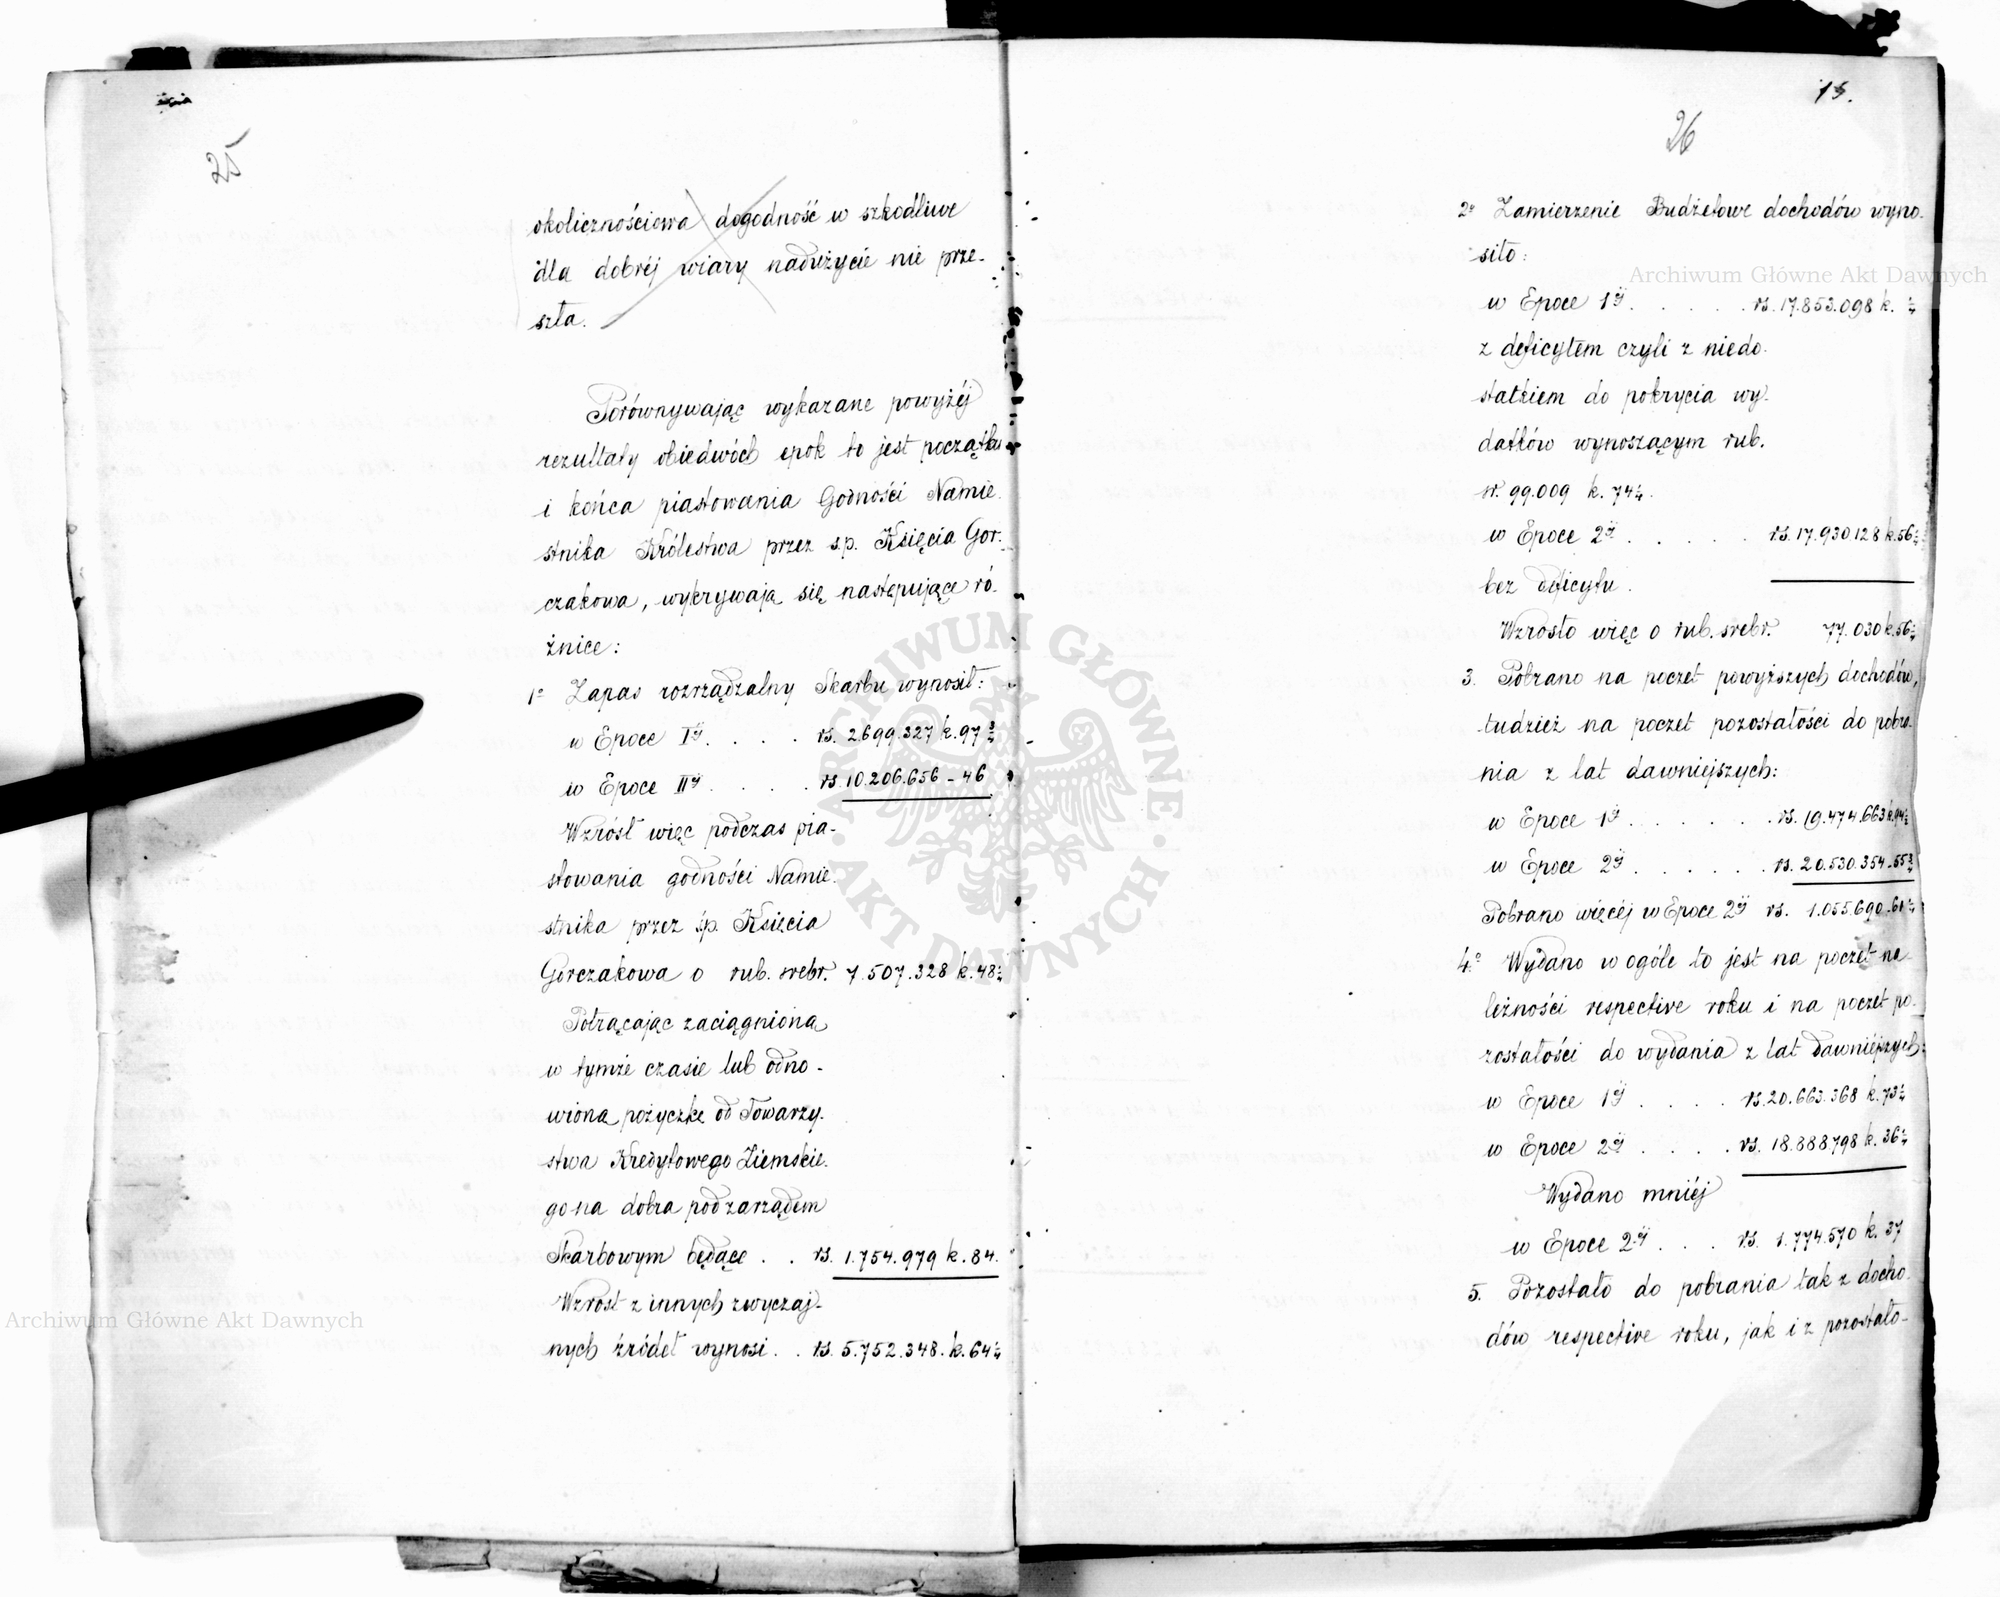 25
okolicznościowa dogodność w szkodliwe
dla dobréj wiary nadużycie nie prze-
szła.
Porównywając wykazane powyżéj
rezultaty obiedwóch epok to jest początku
i końca piastowania Godności Namie-
stnika Królestwa przez s.p. Księcia Gor-
czakowa, wykrywają się następujące ró-
żnice:
1° Zapas rozrządzalny Skarbu wynosił:
w Epoce I éj . . . . rs. 2.699.327 k. 97 3/4
w Epoce II éj . . . . rs. 10.206.656 - 46
Wzrósł więc podczas pia-
stowania godności Namie-
stnika przez śp. Księcia
Gorczakowa o rub. srebr. 7.507.328 k. 48 1/4
Potrącając zaciągnioną
w tymże czasie lub odno-
wioną pożyczkę od Towarzy-
stwa Kredytowego Ziemskie-
go na dobra pod zarządem
Skarbowym będące . . rs. 1.754.979 k. 84.
Wzrost z innych zwyczaj-
nych źródeł wynosi . . rs. 5.752.348. k. 64 1/4
26
2° Zamierzenie Budżetowe dochodów wyno-
siło:
w Epoce 1 éj . . . . . rs. 17.853.098 k.
z deficytem czyli z niedo-
statkiem do pokrycia wy-
datków wynoszącym rub.
sr. 99.009 k. 74 1/4.
w Epoce 2 éj . . . . . rs. 17.930.128 k. 56
bez deficytu.
Wzrosło więc o rub. srebr. 77.030 k. 56
3. Pobrano na poczet powyższych dochodów,
tudzież na poczet pozostałości do pobra-
nia z lat dawniejszych:
w Epoce 1 éj . . . . . . rs. 19.474.663 k. 94
w Epoce 2 éj . . . . . . rs. 20.530.354 - 55 3/4
Pobrano więcéj w Epoce 2 éj rs. 1.055.690 - 61
4° Wydano w ogóle to jest na poczet na-
leżności respective roku i na poczet po-
zostałości do wydania z lat dawniéjszych:
w Epoce 1 éj . . . . rs. 20.663.368 k. 73
w Epoce 2 éj . . . . rs. 18.888.798 k. 36
Wydano mniéj
w Epoce 2 éj . . . rs. 1.774.570 k. 37
5. Pozostało do pobrania tak z docho-
dów respective roku, jak i z pozostało-
Archiwum Główne Akt Dawnych
Archiwum Główne Akt Dawnych
ARCHIWUM GŁÓWNE
· AKT DAWNYCH ·